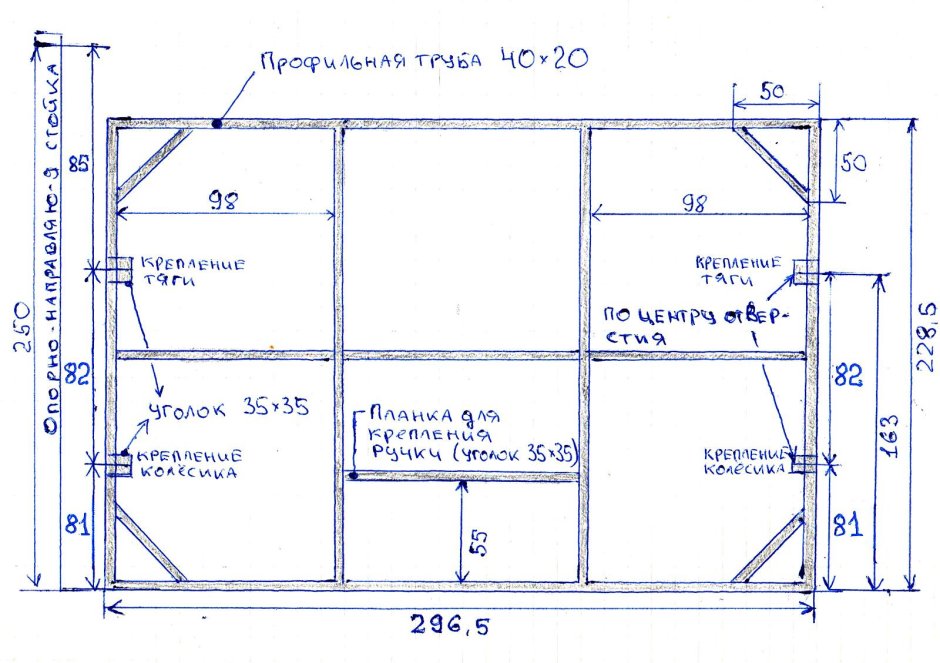 Профильная труба 40×20
50
50
Опорно-направляю-я стойка
85
98
98
крепление
тяги
крепление
тяги
250
228,5
по центру отвер-
стия
82
82
163
уголок 35×35
Планка для
крепления
ручки (уголок 35×35)
крепление
колёсика
крепление
колёсика
81
81
55
296,5